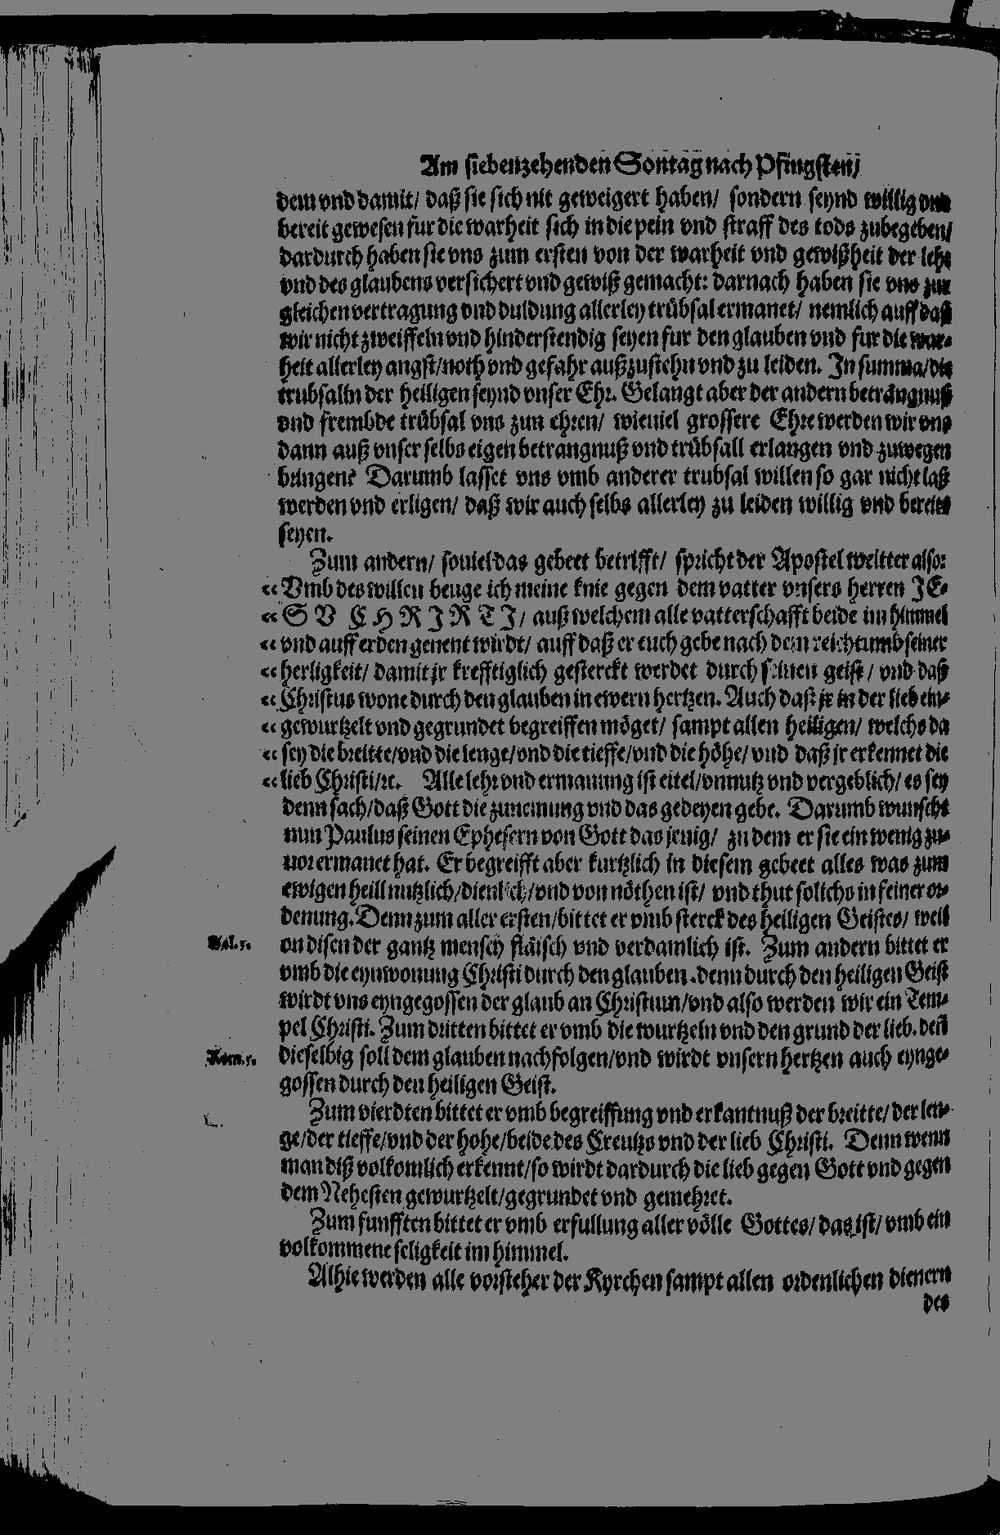 Am siebenzehenden Sontag nach Pfingsten/
dem vnd damit/ daß sie sich nit geweigert haben/ sondern seynd willig vnd
bereit gewesen fur die warheit sich in die pein vnd straff des tods zubegeben/
dardurch haben sie vns zum ersten von der warheit vnd gewißheit der lehr
vnd des glaubens versichert vnd gewiß gemacht: darnach haben sie vns zur
gleichen vertragung vnd duldung allerley trübsal ermanet/ nemlich auff daß
wir nicht zweiffeln vnd hinderstendig seyen fur den glauben vnd fur die war-
heit allerley angst/noth vnd gefahr außzustehn vnd zu leiden. In summa/die
trubsaln der heiligen seynd vnser Ehr. Gelangt aber der andern beträngnuß
vnd frembde trübsal vns zun ehren/ wieuiel grossere Ehre werden wir vns
dann auß vnser selbs eigen betrangnuß vnd trübsall erlangen vnd zuwegen
bringen? Darumb lasset vns vmb anderer trubsal willen so gar nicht laß
werden vnd erligen/ daß wir auch selbs allerley zu leiden willig vnd bereit
seyen.
Zum andern/ souiel das gebeet betrifft/ spricht der Apostel weitter also:
Vmb des willen beuge ich meine knie gegen dem vatter vnsers herren JE-
SV CHRIRTI/ auß welchem alle vatterschafft beide im himmel
vnd auff erden genent wirdt/ auff daß er euch gebe nach dem reichtumb seiner
herligkeit/ damit jr krefftiglich gesterckt werdet durch seinen geist/ vnd daß
Christus wone durch den glauben in ewern hertzen. Auch daß jr in der lieb ein-
gewurtzelt vnd gegrundet begreiffen möget/ sampt allen heiligen/ welchs da
sey die breitte/vnd die lenge/vnd die tieffe/vnd die höhe/ vnd daß jr erkennet die
lieb Christi/ꝛc. Alle lehr vnd ermanung ist eitel/vnnutz vnd vergeblich/ es sey
denn sach/daß Gott die zunemung vnd das gedeyen gebe. Darumb wunscht
nun Paulus seinen Ephesern von Gott das jenig/ zu dem er sie ein wenig zu-
uor ermanet hat. Er begreifft aber kurtzlich in diesem gebeet alles was zum
ewigen heill nutzlich/dienlich/vnd von nöthen ist/ vnd thut sollichs in seiner or-
denung. Denn zum aller ersten/bittet er vmb sterck des heiligen Geistes/ weil
Gal. 5. on disen der gantz mensch fläisch vnd verdamlich ist. Zum andern bittet er
vmb die eynwonung Christi durch den glauben. denn durch den heiligen Geist
wirdt vns eyngegossen der glaub an Christum/vnd also werden wir ein Tem-
pel Christi. Zum dritten bittet er vmb die wurtzeln vnd den grund der lieb. deñ
Rom. 5. dieselbig soll dem glauben nachfolgen/vnd wirdt vnsern hertzen auch eynge-
gossen durch den heiligen Geist.
Zum vierdten bittet er vmb begreiffung vnd erkantnuß der breitte/ der len-
ge/der tieffe/vnd der hohe/beide des Creutzs vnd der lieb Christi. Denn wenn
man diß volkomlich erkennt/so wirdt dardurch die lieb gegen Gott vnd gegen
dem Nehesten gewurtzelt/gegrundet vnd gemehret.
Zum funfften bittet er vmb erfullung aller völle Gottes/ das ist/ vmb ein
volkommene seligkeit im himmel.
Alhie werden alle vorsteher der Kyrchen sampt allen ordenlichen dienern
des